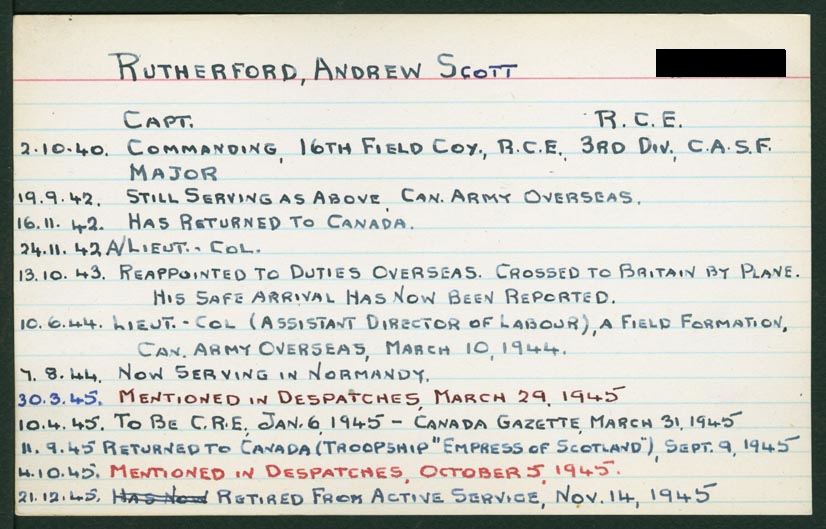 RUTHERFORD, ANDREW SCOTT
CAPT. R.C.E.
2.10.40. COMMANDING, 16TH FIELD COY., R.C.E., 3RD DIV., C.A.S.F.
MAJOR
19.9.42. STILL SERVING AS ABOVE, CAN. ARMY OVERSEAS.
16.11.42. HAS RETURNED TO CANADA.
24.11.42 A/LIEUT.-COL.
13.10.43. REAPPOINTED TO DUTIES OVERSEAS. CROSSED TO BRITAIN BY PLANE.
HIS SAFE ARRIVAL HAS NOW BEEN REPORTED.
10.6.44. LIEUT.-COL (ASSISTANT DIRECTOR OF LABOUR), A FIELD FORMATION,
CAN. ARMY OVERSEAS, MARCH 10, 1944.
7.8.44. NOW SERVING IN NORMANDY.
30.3.45. MENTIONED IN DESPATCHES, MARCH 29, 1945
10.4.45. TO BE C.R.E., JAN. 6, 1945 - CANADA GAZETTE, MARCH 31, 1945
11.9.45 RETURNED TO CANADA (TROOPSHIP "EMPRESS OF SCOTLAND"), SEPT. 9, 1945
4.10.45. MENTIONED IN DESPATCHES, OCTOBER 5, 1945.
21.12.45. HAS NOW RETIRED FROM ACTIVE SERVICE, NOV. 14, 1945